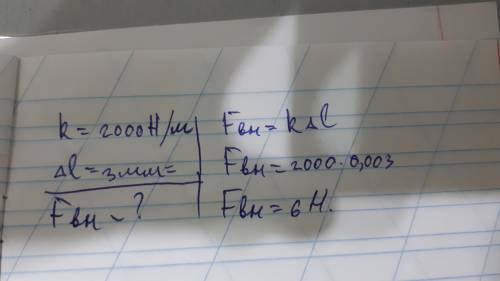 k = 2000 Н/м
Δl = 3 мм =
Fвн - ?
Fвн = kΔl
Fвн = 2000 · 0,003
Fвн = 6 Н.